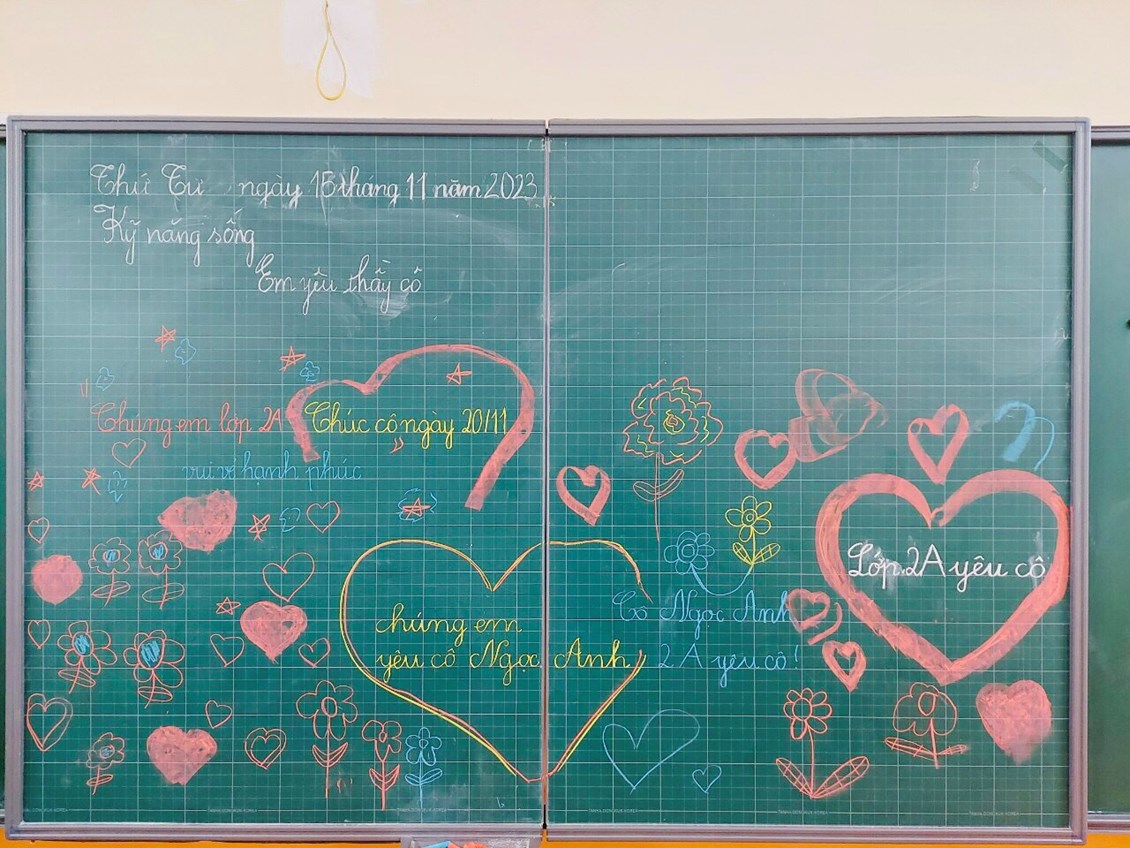 Thứ Tư ngày 15 tháng 11 năm 2023
Kỹ năng sống
Em yêu thầy cô
"Chúng em lớp 2A Chúc cô ngày 20/11
vui vẻ hạnh phúc "
Lớp 2A yêu cô
chúng em
yêu cô Ngọc Anh
Cô Ngọc Anh
2A yêu cô!